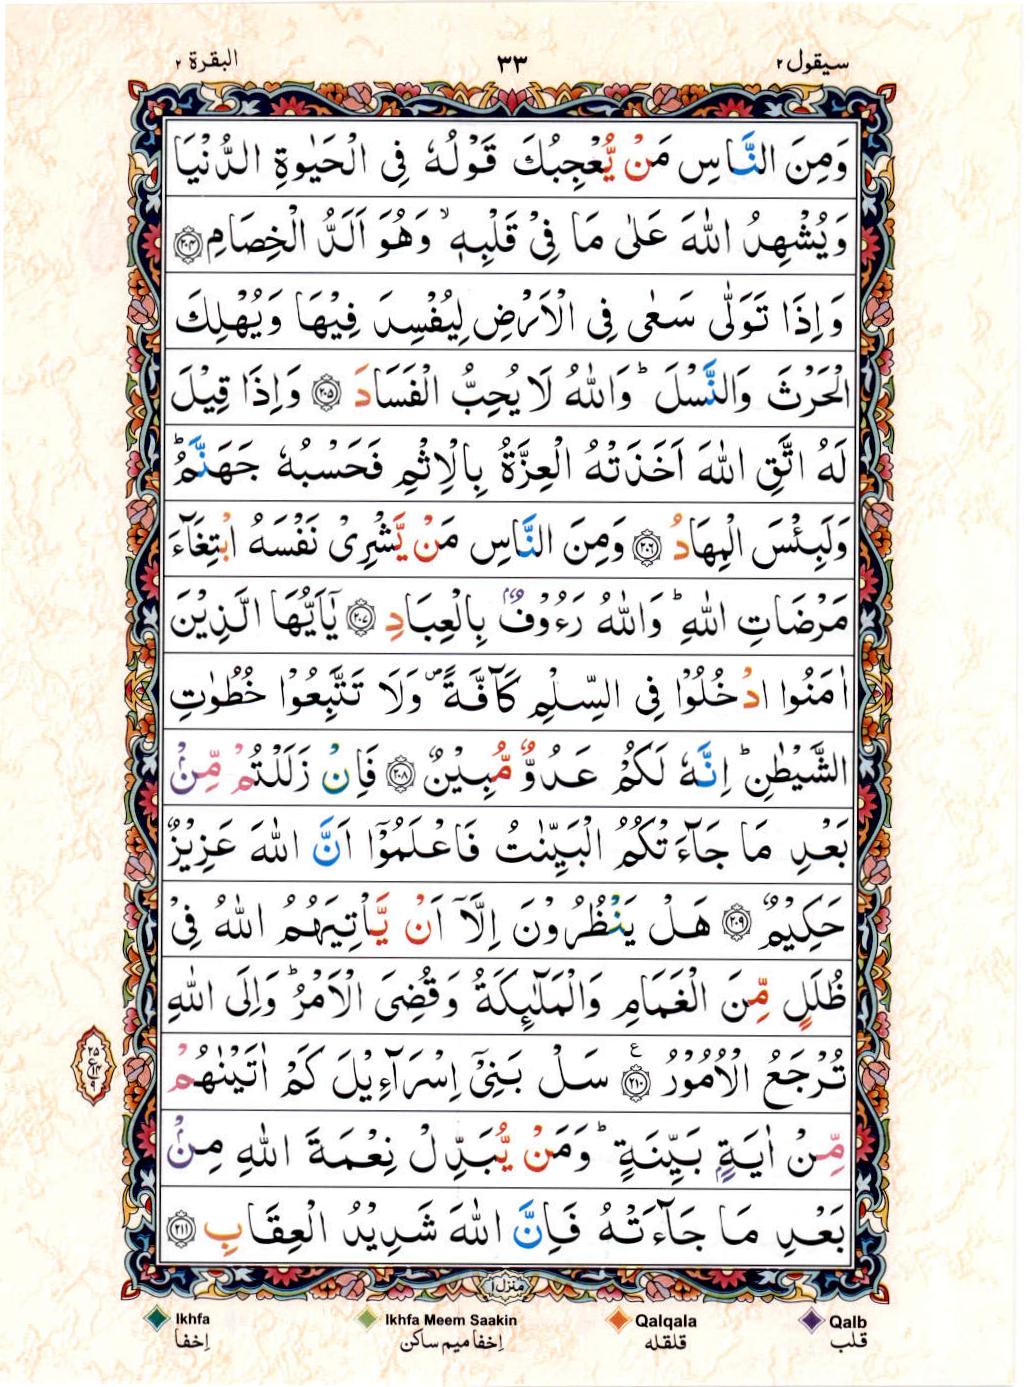 سيقول ٢ ٣٣ البقرة ٢
وَمِنَ النَّاسِ مَنْ يُّعْجِبُكَ قَوْلُهٗ فِى الْحَيٰوةِ الدُّنْيَا
وَيُشْهِدُ اللّٰهَ عَلٰى مَا فِىْ قَلْبِهٖ ۙ وَهُوَ اَلَدُّ الْخِصَامِ ﴿٢٠٤﴾
وَاِذَا تَوَلّٰى سَعٰى فِى الْاَرْضِ لِيُفْسِدَ فِيْهَا وَيُهْلِكَ
الْحَرْثَ وَالنَّسْلَ ؕ وَاللّٰهُ لَا يُحِبُّ الْفَسَادَ ﴿٢٠٥﴾ وَاِذَا قِيْلَ
لَهُ اتَّقِ اللّٰهَ اَخَذَتْهُ الْعِزَّةُ بِالْاِثْمِ فَحَسْبُهٗ جَهَنَّمُ ؕ
وَلَبِئْسَ الْمِهَادُ ﴿٢٠٦﴾ وَمِنَ النَّاسِ مَنْ يَّشْرِىْ نَفْسَهُ ابْتِغَآءَ
مَرْضَاتِ اللّٰهِ ؕ وَاللّٰهُ رَءُوْفٌۢ بِالْعِبَادِ ﴿٢٠٧﴾ يٰٓاَيُّهَا الَّذِيْنَ
اٰمَنُوا ادْخُلُوْا فِى السِّلْمِ كَآفَّةً ۪ وَلَا تَتَّبِعُوْا خُطُوٰتِ
الشَّيْطٰنِ ؕ اِنَّهٗ لَكُمْ عَدُوٌّ مُّبِيْنٌ ﴿٢٠٨﴾ فَاِنْ زَلَلْتُمْ مِّنْۢ
بَعْدِ مَا جَآءَتْكُمُ الْبَيِّنٰتُ فَاعْلَمُوْٓا اَنَّ اللّٰهَ عَزِيْزٌ
حَكِيْمٌ ﴿٢٠٩﴾ هَلْ يَنْظُرُوْنَ اِلَّآ اَنْ يَّاْتِيَهُمُ اللّٰهُ فِىْ
ظُلَلٍ مِّنَ الْغَمَامِ وَالْمَلٰٓئِكَةُ وَقُضِىَ الْاَمْرُ ؕ وَاِلَى اللّٰهِ
تُرْجَعُ الْاُمُوْرُ ﴿٢١٠﴾ ع سَلْ بَنِىْٓ اِسْرَآءِيْلَ كَمْ اٰتَيْنٰهُمْ
مِّنْ اٰيَةٍۭ بَيِّنَةٍ ؕ وَمَنْ يُّبَدِّلْ نِعْمَةَ اللّٰهِ مِنْۢ
بَعْدِ مَا جَآءَتْهُ فَاِنَّ اللّٰهَ شَدِيْدُ الْعِقَابِ ﴿٢١١﴾
٢٥
ع ١٤
٩
منزل ١
Ikhfa Ikhfa Meem Saakin Qalqala Qalb
اِخفا اِخفا میم ساکن قلقله قلب